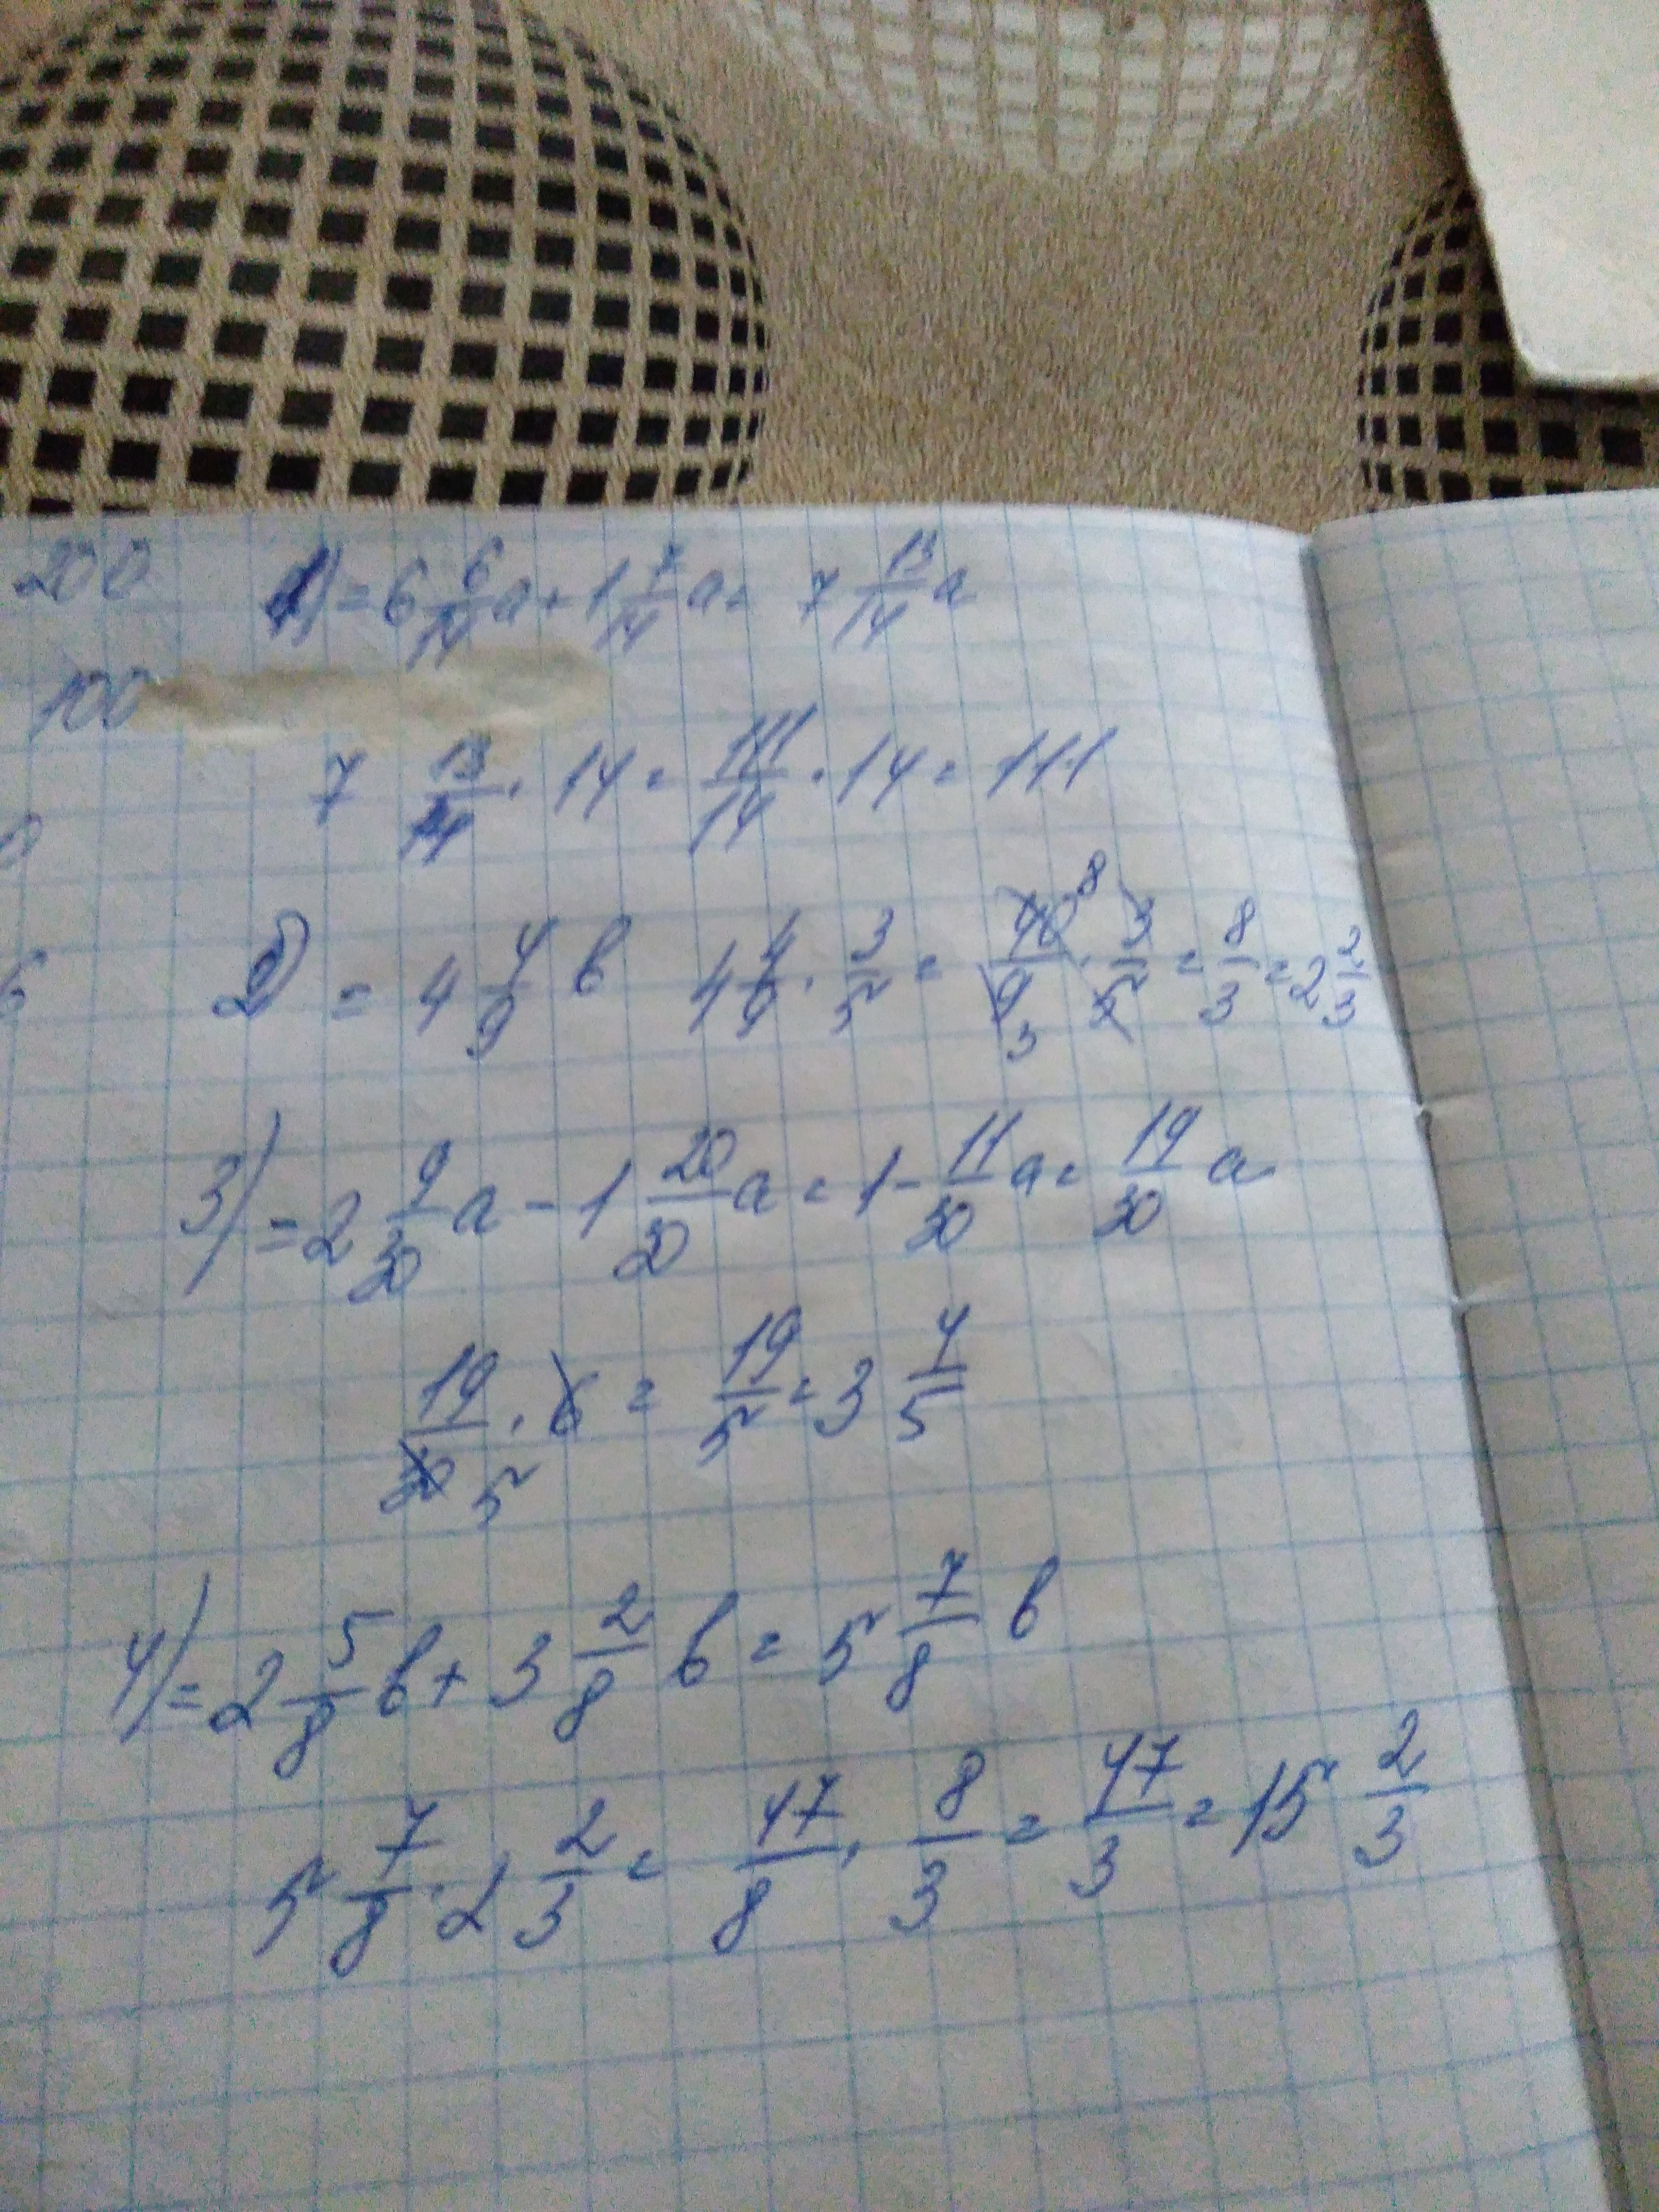 200 1) = 6 6/14 a + 1 7/14 a = 7 13/14 a
100
7 13/14 · 14 = 111/14 · 14 = 111
2) = 4 4/9 b 4 4/9 · 3/5 = 40 8/9 3 · 3/5 = 8/3 = 2 2/3
6
3) = 2 9/30 a - 1 20/30 a = 1 - 11/30 a = 19/30 a
19/30 5 · 6 = 19/5 = 3 4/5
4) = 2 5/8 b + 3 2/8 b = 5 7/8 b
5 7/8 · 2 2/3 = 47/8 · 8/3 = 47/3 = 15 2/3